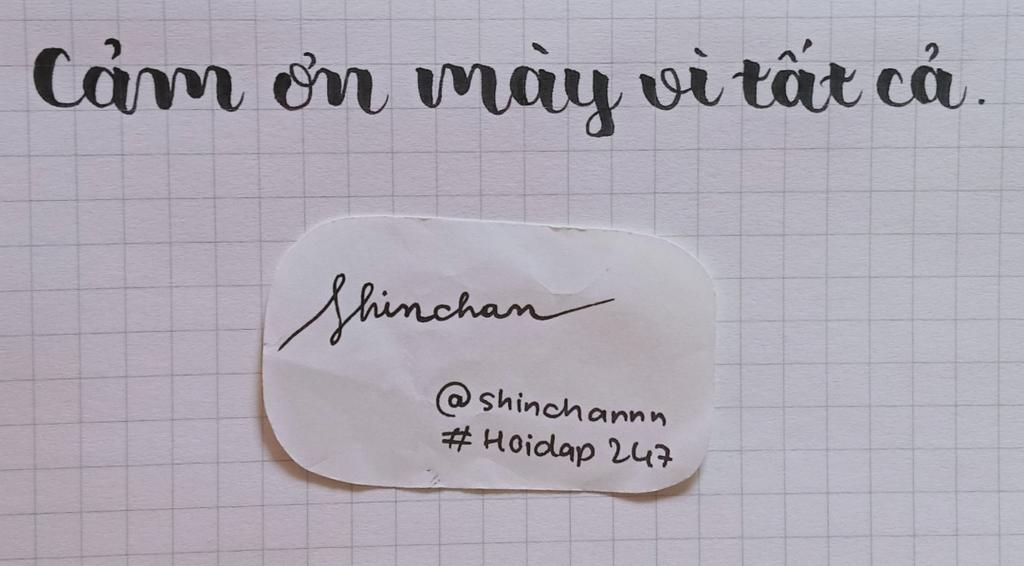 Cảm ơn mày vì tất cả.
Shinchan
@shinchannn
# Hoidap 247